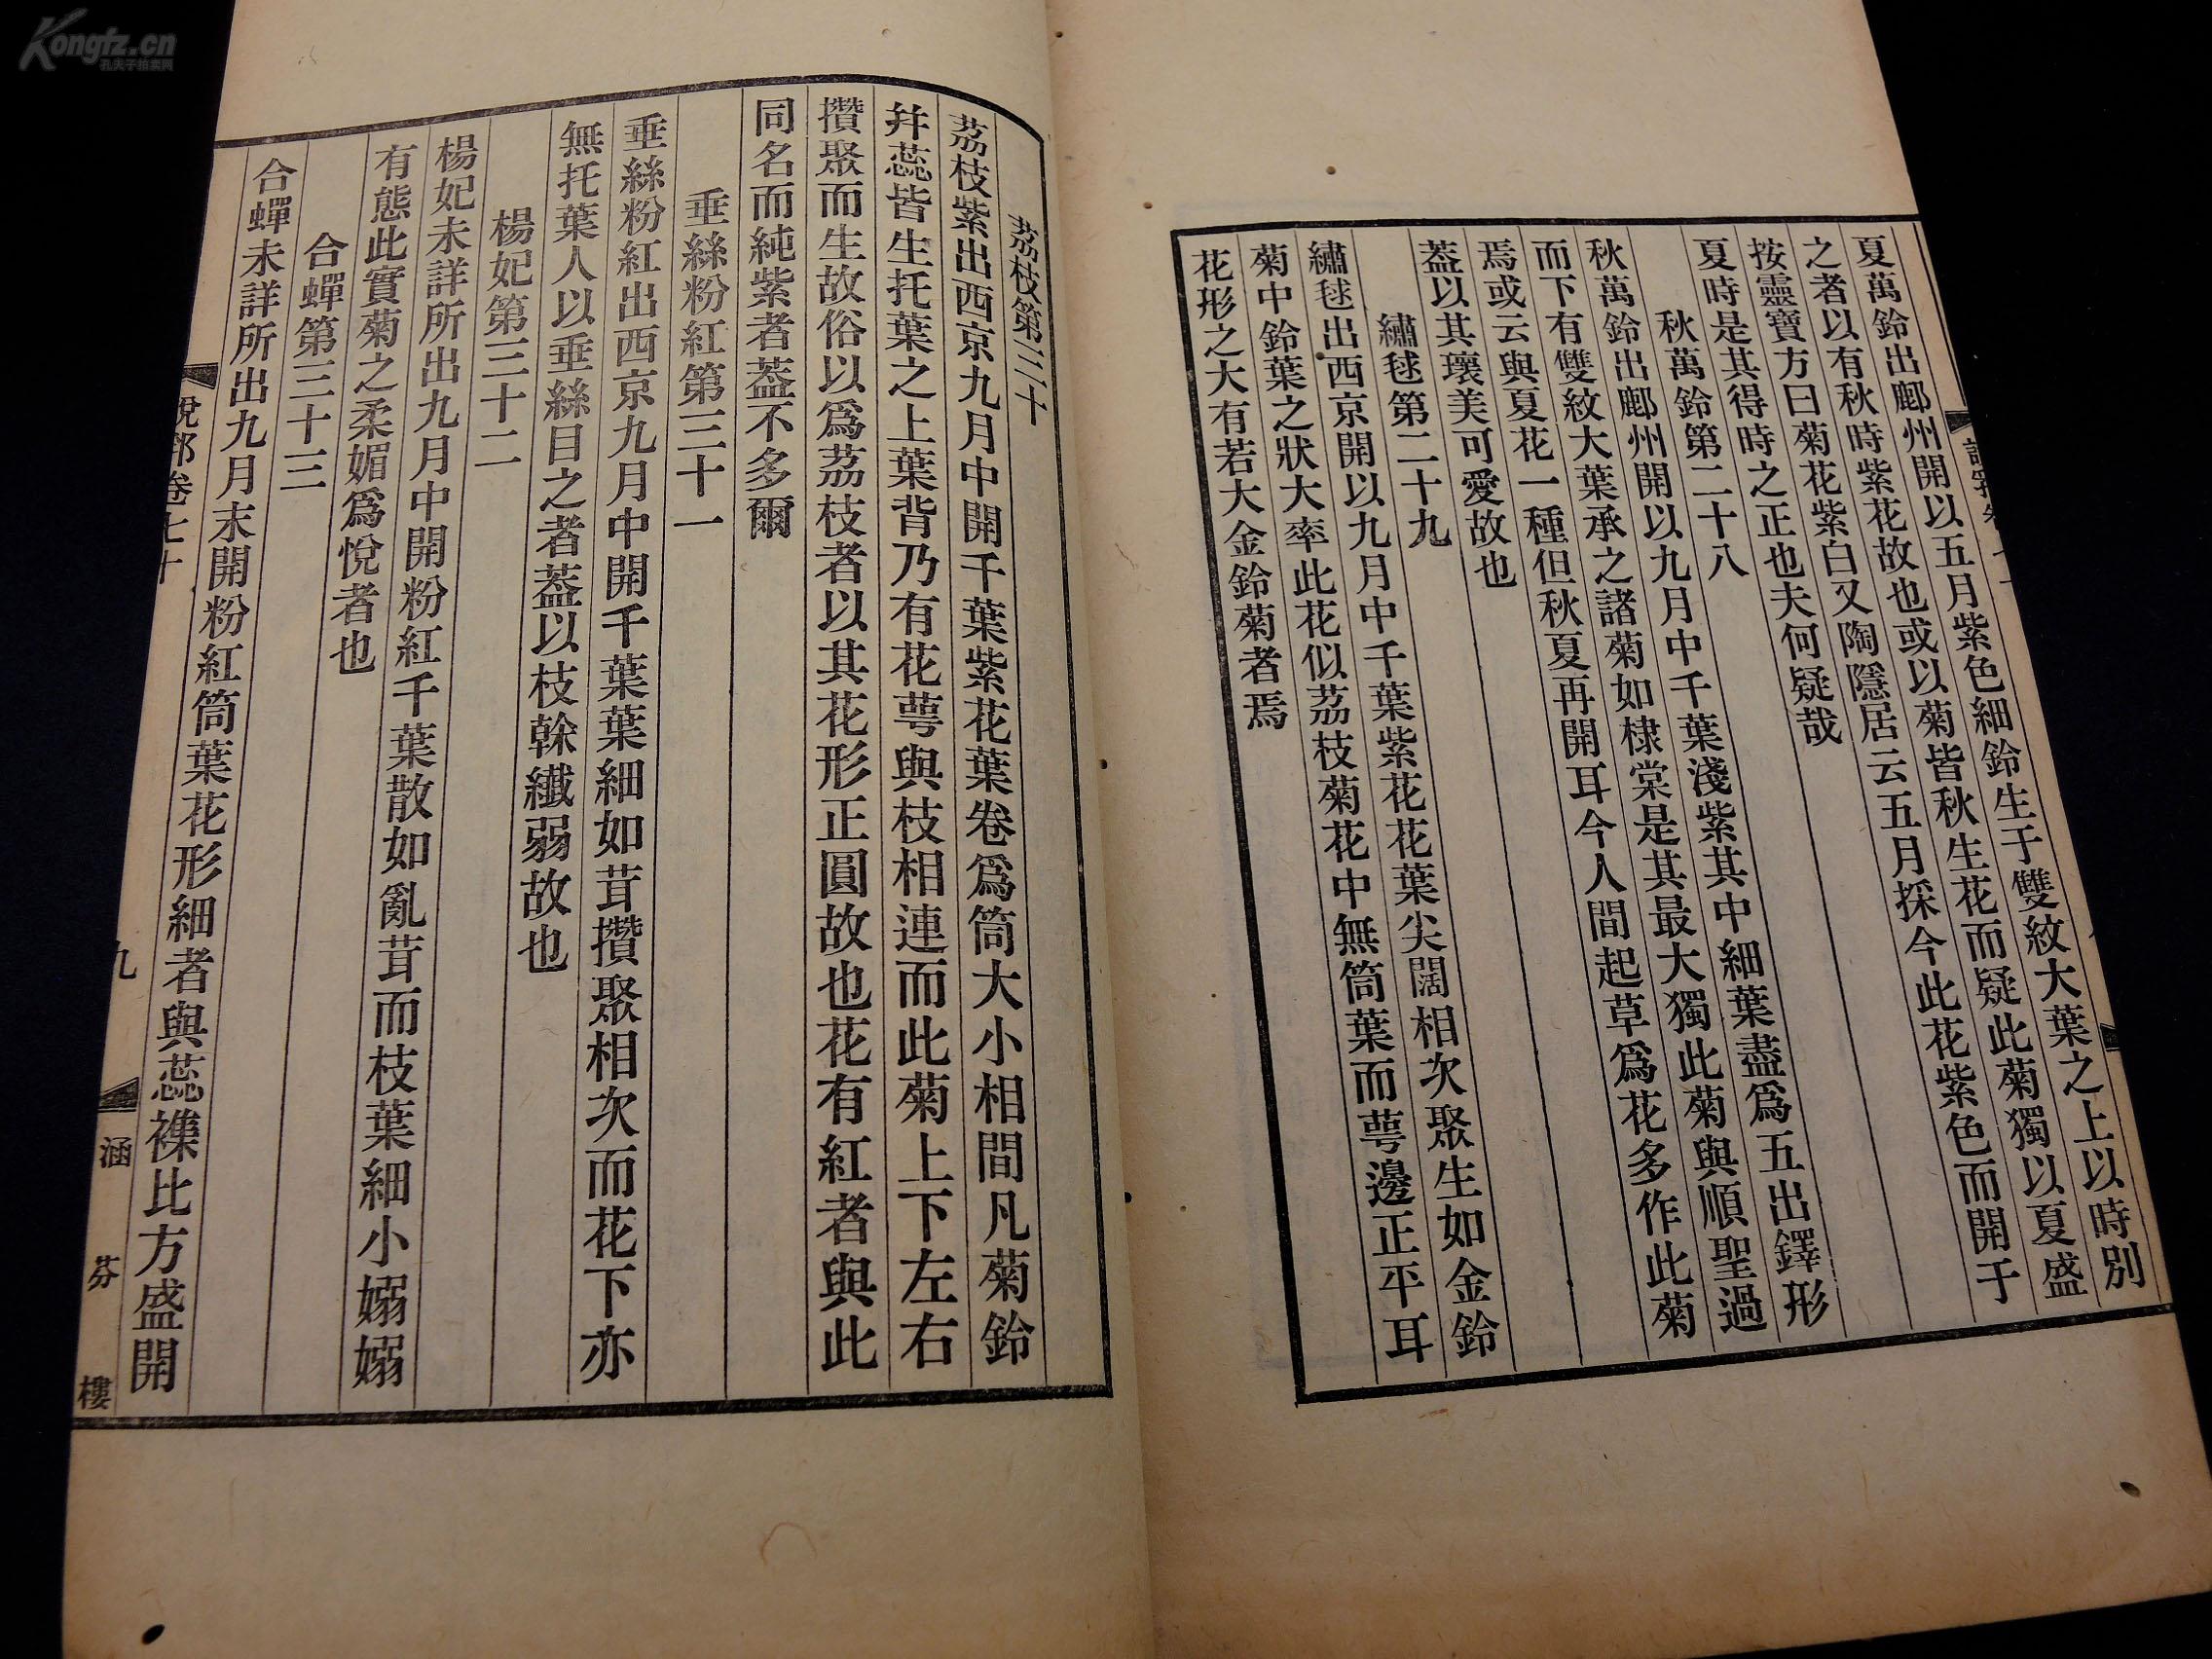 夏萬鈴出鄜州開以五月紫色細鈴生于雙紋大葉之上以時別
之者以有秋時紫花故也或以菊皆秋生花而疑此菊獨以夏盛
按靈寶方曰菊花紫白又陶隱居云五月採今此花紫色而開于
夏時是其得時之正也夫何疑哉
秋萬鈴第二十八
秋萬鈴出鄜州開以九月中千葉淺紫其中細葉盡爲五出鐸形
而下有雙紋大葉承之諸菊如棣棠是其最大獨此菊與順聖過
焉或云與夏花一種但秋夏再開耳今人間起草爲花多作此菊
葢以其瓌美可愛故也
繡毬第二十九
繡毬出西京開以九月中千葉紫花花葉尖闊相次聚生如金鈴
菊中鈴葉之狀大率此花似茘枝菊花中無筒葉而萼邊正平耳
花形之大有若大金鈴菊者焉
茘枝第三十
茘枝紫出西京九月中開千葉紫花葉卷爲筒大小相間凡菊鈴
并蕊皆生托葉之上葉背乃有花萼與枝相連而此菊上下左右
攢聚而生故俗以爲茘枝者以其花形正圓故也花有紅者與此
同名而純紫者葢不多爾
垂絲粉紅第三十一
垂絲粉紅出西京九月中開千葉葉細如茸攢聚相次而花下亦
無托葉人以垂絲目之者葢以枝榦纖弱故也
楊妃第三十二
楊妃未詳所出九月中開粉紅千葉散如亂茸而枝葉細小嫋嫋
有態此實菊之柔媚爲悅者也
合蟬第三十三
合蟬未詳所出九月末開粉紅筒葉花形細者與蕊襍比方盛開
說郛卷七十
九
涵芬樓
Kongfz.cn
孔夫子拍卖网